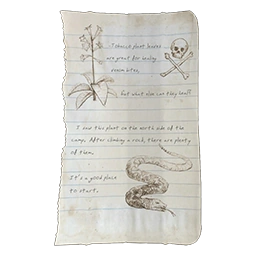 Tobacco plant leaves
are great for healing
venom bites,
but what else can they heal?
I saw this plant on the north side of the
camp. After climbing a rock, there are plenty
of them.
It's a good place
to start.